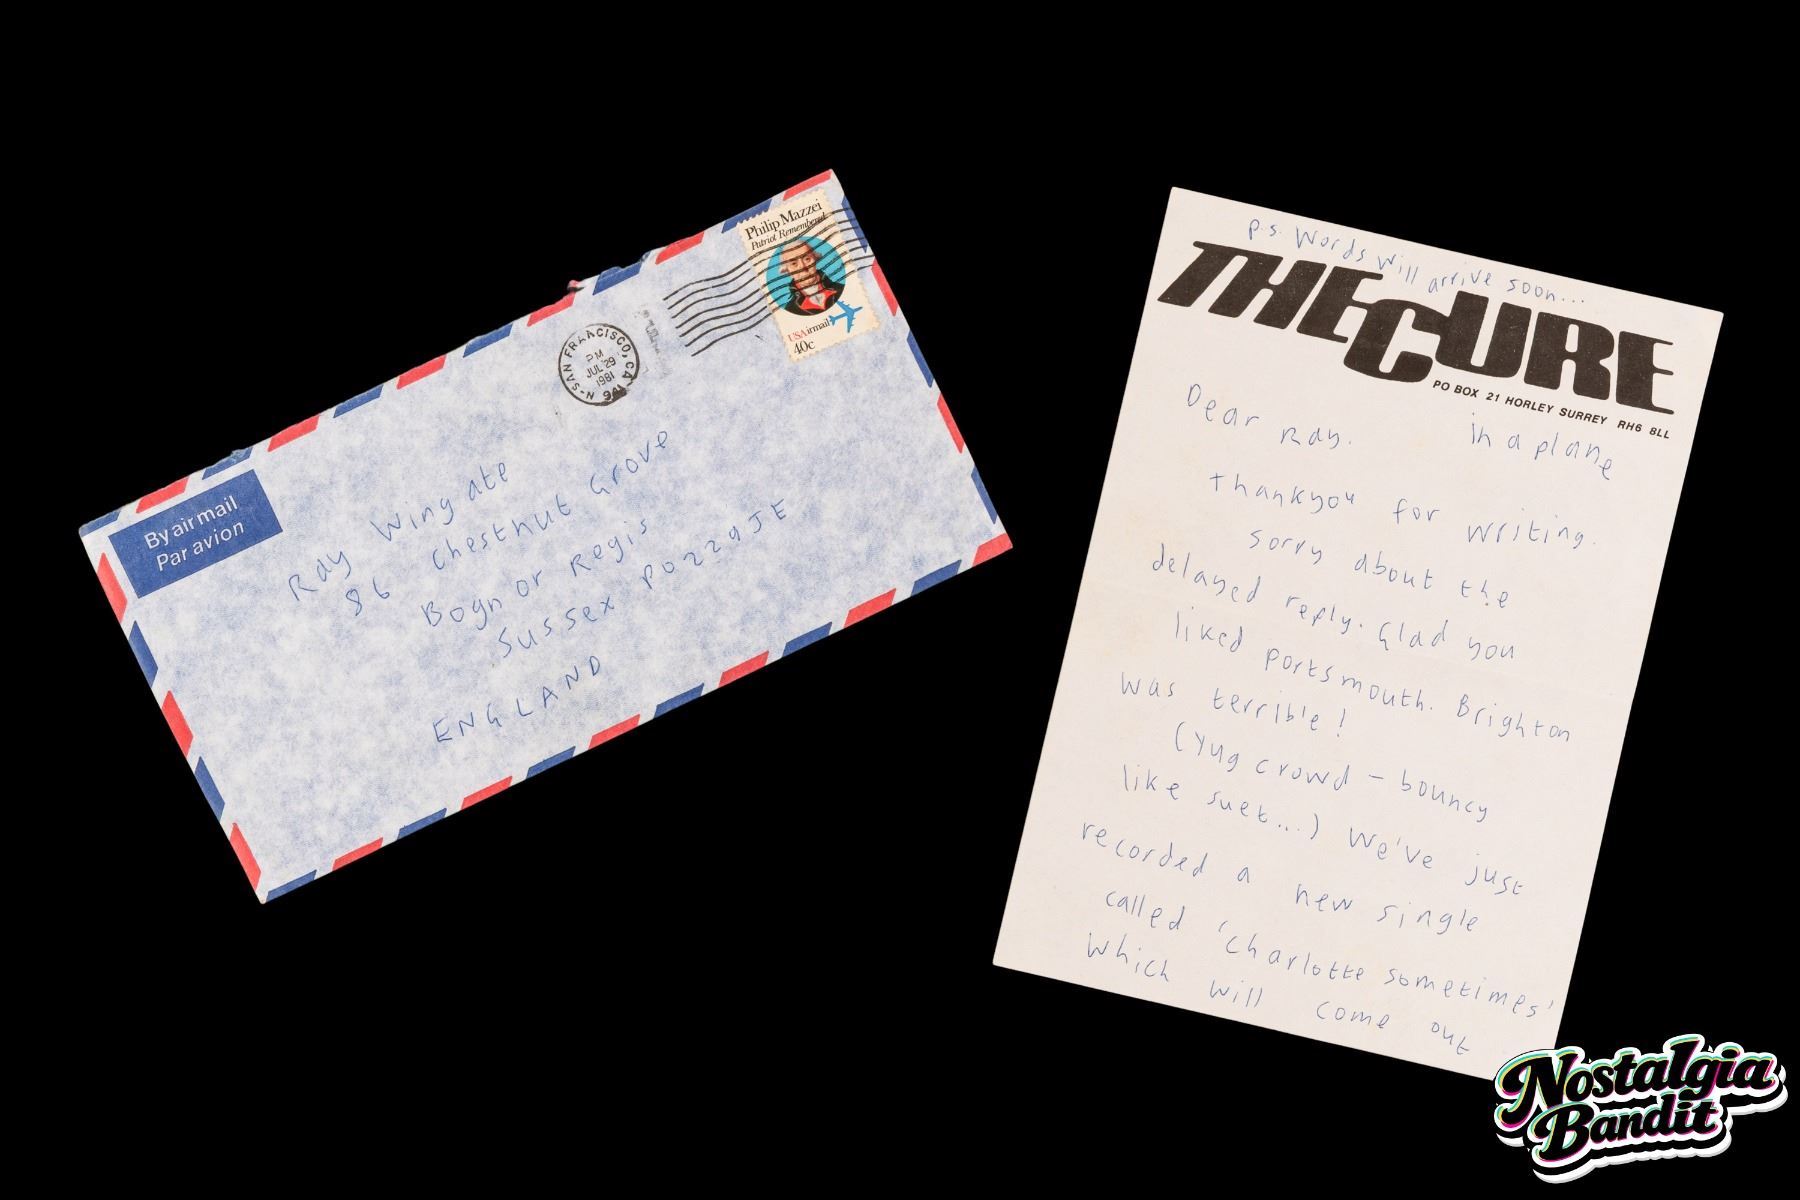 By air mail
Par avion
SAN FRANCISCO, CA
PM
JUL 29
1981
Philip Mazzei
Patriot Remembered
USAirmail
40c
Ray Wingate
86 Chestnut Grove
Bognor Regis
Sussex PO229JE
ENGLAND
p.s. Words will arrive soon...
THE CURE
PO BOX 21 HORLEY SURREY RH6 8LL
Dear Ray.
in a plane
thankyou for writing.
Sorry about the
delayed reply. Glad you
liked portsmouth. Brighton
was terrible!
(Yug crowd – bouncy
like suet...) We've just
recorded a new single
called 'charlotte sometimes'
which will come out
Nostalgia
Bandit